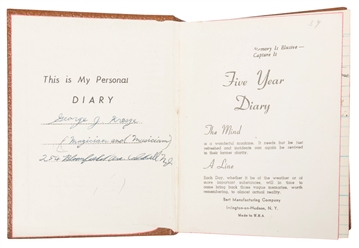 This is My Personal
DIARY
George J.
(Magician and Musician)
254 Bloomfield Ave Caldwell N.J.
59
Memory Is Elusive—
Capture It
Five Year
Diary
The Mind
is a wonderful machine. It needs but be but
refreshed and incidents can again be revived in
their former clarity.
A Line
Each Day, whether it be of the weather or of
more important substances, will in time to
come bring back those vague memories, worth
remembering, to almost actual reality.
Bert Manufacturing Company
Irvington-on-Hudson, N. Y.
Made in U.S.A.